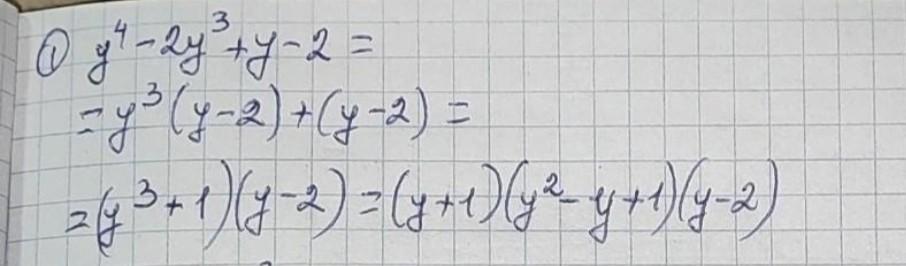 ① y⁴ - 2y³ + y - 2 =
= y³ (y - 2) + (y - 2) =
= (y³ + 1)(y - 2) = (y + 1)(y² - y + 1)(y - 2)